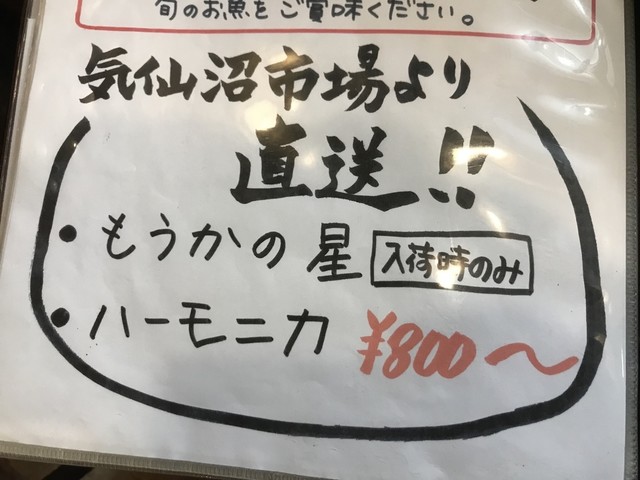 旬のお魚をご賞味ください。
気仙沼市場より
直送!!
・もうかの星 入荷時のみ
・ハーモニカ ¥800〜